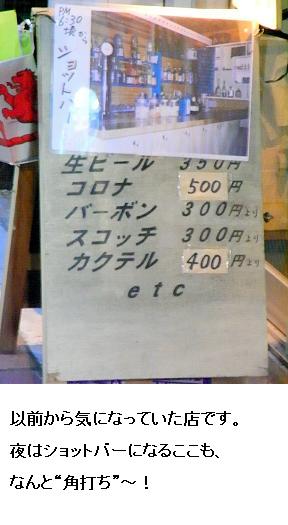 PM
6:30
頃から
ショットバー
生ビール 350円
コロナ 500円
バーボン 300円より
スコッチ 300円より
カクテル 400円より
etc
以前から気になっていた店です。
夜はショットバーになるここも、
なんと“角打ち”～！